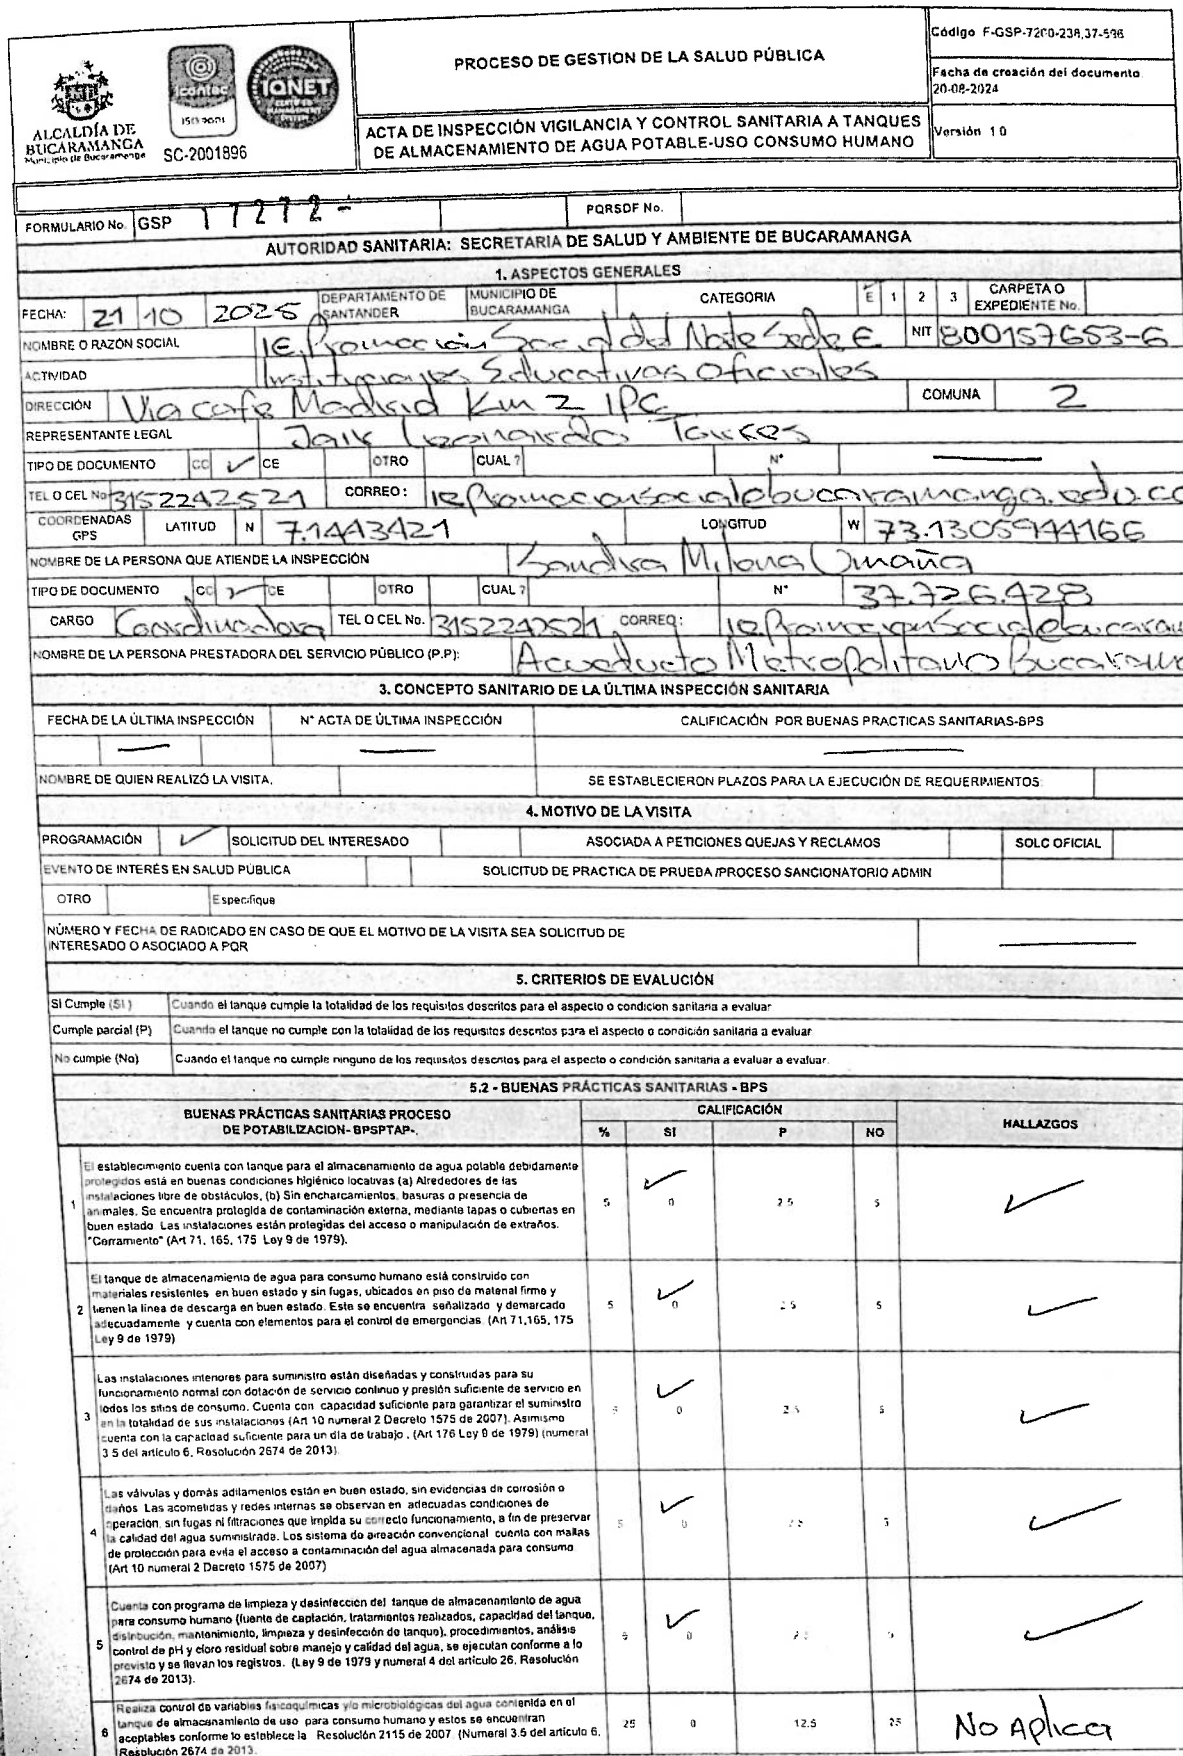 ALCALDÍA DE
BUCARAMANGA
Municipio de Bucaramanga
icontec
ISO 9001
IQNET
SC-2001896
PROCESO DE GESTION DE LA SALUD PÚBLICA
ACTA DE INSPECCIÓN VIGILANCIA Y CONTROL SANITARIA A TANQUES
DE ALMACENAMIENTO DE AGUA POTABLE-USO CONSUMO HUMANO
Código F-GSP-7200-238,37-596
Facha de creación del documento
20-08-2024
Versión 1 0
FORMULARIO No. GSP 17272- PQRSDF No.
AUTORIDAD SANITARIA: SECRETARIA DE SALUD Y AMBIENTE DE BUCARAMANGA
1. ASPECTOS GENERALES
FECHA: 21 10 2025 DEPARTAMENTO DE SANTANDER MUNICIPIO DE BUCARAMANGA CATEGORIA E 1 2 3 CARPETA O EXPEDIENTE No.
NOMBRE O RAZÓN SOCIAL IE. Promoción Social del Norte Sede E NIT 800157653-6
ACTIVIDAD Instituciones Educativas Oficiales
DIRECCIÓN Via cafe Madrid Km 2 IPC COMUNA 2
REPRESENTANTE LEGAL Jair Leonardo Torres
TIPO DE DOCUMENTO CC ✓ CE OTRO CUAL ? N° —
TEL O CEL No 3152242521 CORREO: ie.promocionsocial@bucaramanga.edu.co
COORDENADAS GPS LATITUD N 7.1443421 LONGITUD W 73.1305944166
NOMBRE DE LA PERSONA QUE ATIENDE LA INSPECCIÓN Sandra Milena Umaña
TIPO DE DOCUMENTO CC ✓ CE OTRO CUAL ? N° 37.726.428
CARGO Coordinadora TEL O CEL No. 3152242521 CORREO: ie.promocionsocial@bucaram
NOMBRE DE LA PERSONA PRESTADORA DEL SERVICIO PÚBLICO (P.P): Acueducto Metropolitano Bucarama
3. CONCEPTO SANITARIO DE LA ÚLTIMA INSPECCIÓN SANITARIA
FECHA DE LA ÚLTIMA INSPECCIÓN N° ACTA DE ÚLTIMA INSPECCIÓN CALIFICACIÓN POR BUENAS PRACTICAS SANITARIAS-BPS
— — —
NOMBRE DE QUIEN REALIZÓ LA VISITA. SE ESTABLECIERON PLAZOS PARA LA EJECUCIÓN DE REQUERIMIENTOS
4. MOTIVO DE LA VISITA
PROGRAMACIÓN ✓ SOLICITUD DEL INTERESADO ASOCIADA A PETICIONES QUEJAS Y RECLAMOS SOLC OFICIAL
EVENTO DE INTERÉS EN SALUD PÚBLICA SOLICITUD DE PRACTICA DE PRUEBA /PROCESO SANCIONATORIO ADMIN
OTRO Especifique
NÚMERO Y FECHA DE RADICADO EN CASO DE QUE EL MOTIVO DE LA VISITA SEA SOLICITUD DE
INTERESADO O ASOCIADO A PQR —
5. CRITERIOS DE EVALUCIÓN
SI Cumple (SI) Cuando el tanque cumple la totalidad de los requisitos descritos para el aspecto o condicion sanitaria a evaluar
Cumple parcial (P) Cuando el tanque no cumple con la totalidad de los requisitos descritos para el aspecto o condición sanitaria a evaluar
No cumple (No) Cuando el tanque no cumple ninguno de los requisitos descritos para el aspecto o condición sanitaria a evaluar a evaluar.
5.2 - BUENAS PRÁCTICAS SANITARIAS - BPS
BUENAS PRÁCTICAS SANITARIAS PROCESO
DE POTABILIZACION- BPSPTAP-.
CALIFICACIÓN
% SI P NO
HALLAZGOS
1 El establecimiento cuenta con tanque para el almacenamiento de agua potable debidamente
protegidos está en buenas condiciones higiénico locativas (a) Alrededores de las
instalaciones libre de obstáculos, (b) Sin encharcamientos, basuras o presencia de
animales. Se encuentra protegida de contaminación externa, mediante tapas o cubiertas en
buen estado Las instalaciones están protegidas del acceso o manipulación de extraños.
"Cerramiento" (Art 71, 165, 175 Ley 9 de 1979).
5 ✓ 0 2.5 5 ✓
2 El tanque de almacenamiento de agua para consumo humano está construido con
materiales resistentes en buen estado y sin fugas, ubicados en piso de material firme y
tienen la linea de descarga en buen estado. Este se encuentra señalizado y demarcado
adecuadamente y cuenta con elementos para el control de emergencias. (Art 71,165, 175
Ley 9 de 1979)
5 ✓ 0 2.5 5 ✓
3 Las instalaciones interiores para suministro están diseñadas y construidas para su
funcionamiento normal con dotación de servicio continuo y presión suficiente de servicio en
todos los sitios de consumo. Cuenta con capacidad suficiente para garantizar el suministro
en la totalidad de sus instalaciones (Art 10 numeral 2 Decreto 1575 de 2007). Asimismo
cuenta con la capacidad suficiente para un día de trabajo . (Art 176 Ley 9 de 1979) (numeral
3 5 del articulo 6, Resolución 2674 de 2013).
5 ✓ 0 2.5 5 ✓
4 Las válvulas y demás aditamentos están en buen estado, sin evidencias de corrosión o
daños Las acometidas y redes internas se observan en adecuadas condiciones de
operación, sin fugas ni filtraciones que impida su correcto funcionamiento, a fin de preservar
la calidad del agua suministrada. Los sistema de aireación convencional cuenta con mallas
de protección para evita el acceso a contaminación del agua almacenada para consumo
(Art 10 numeral 2 Decreto 1575 de 2007)
5 ✓ 0 2.5 5 ✓
5 Cuenta con programa de limpieza y desinfección del tanque de almacenamiento de agua
para consumo humano (fuente de captación, tratamientos realizados, capacidad del tanque,
distribución, mantenimiento, limpieza y desinfección de tanque), procedimientos, análisis
control de pH y cloro residual sobre manejo y calidad del agua, se ejecutan conforme a lo
previsto y se llevan los registros. (Ley 9 de 1979 y numeral 4 del articulo 26, Resolución
2674 de 2013).
5 ✓ 0 2.5 5 ✓
6 Realiza control de variables fisicoquímicas y/o microbiológicas del agua contenida en el
tanque de almacenamiento de uso para consumo humano y estos se encuentran
aceptables conforme lo establece la Resolución 2115 de 2007 (Numeral 3.5 del articulo 6,
Resolución 2674 de 2013.
25 0 12.5 25 No Aplica